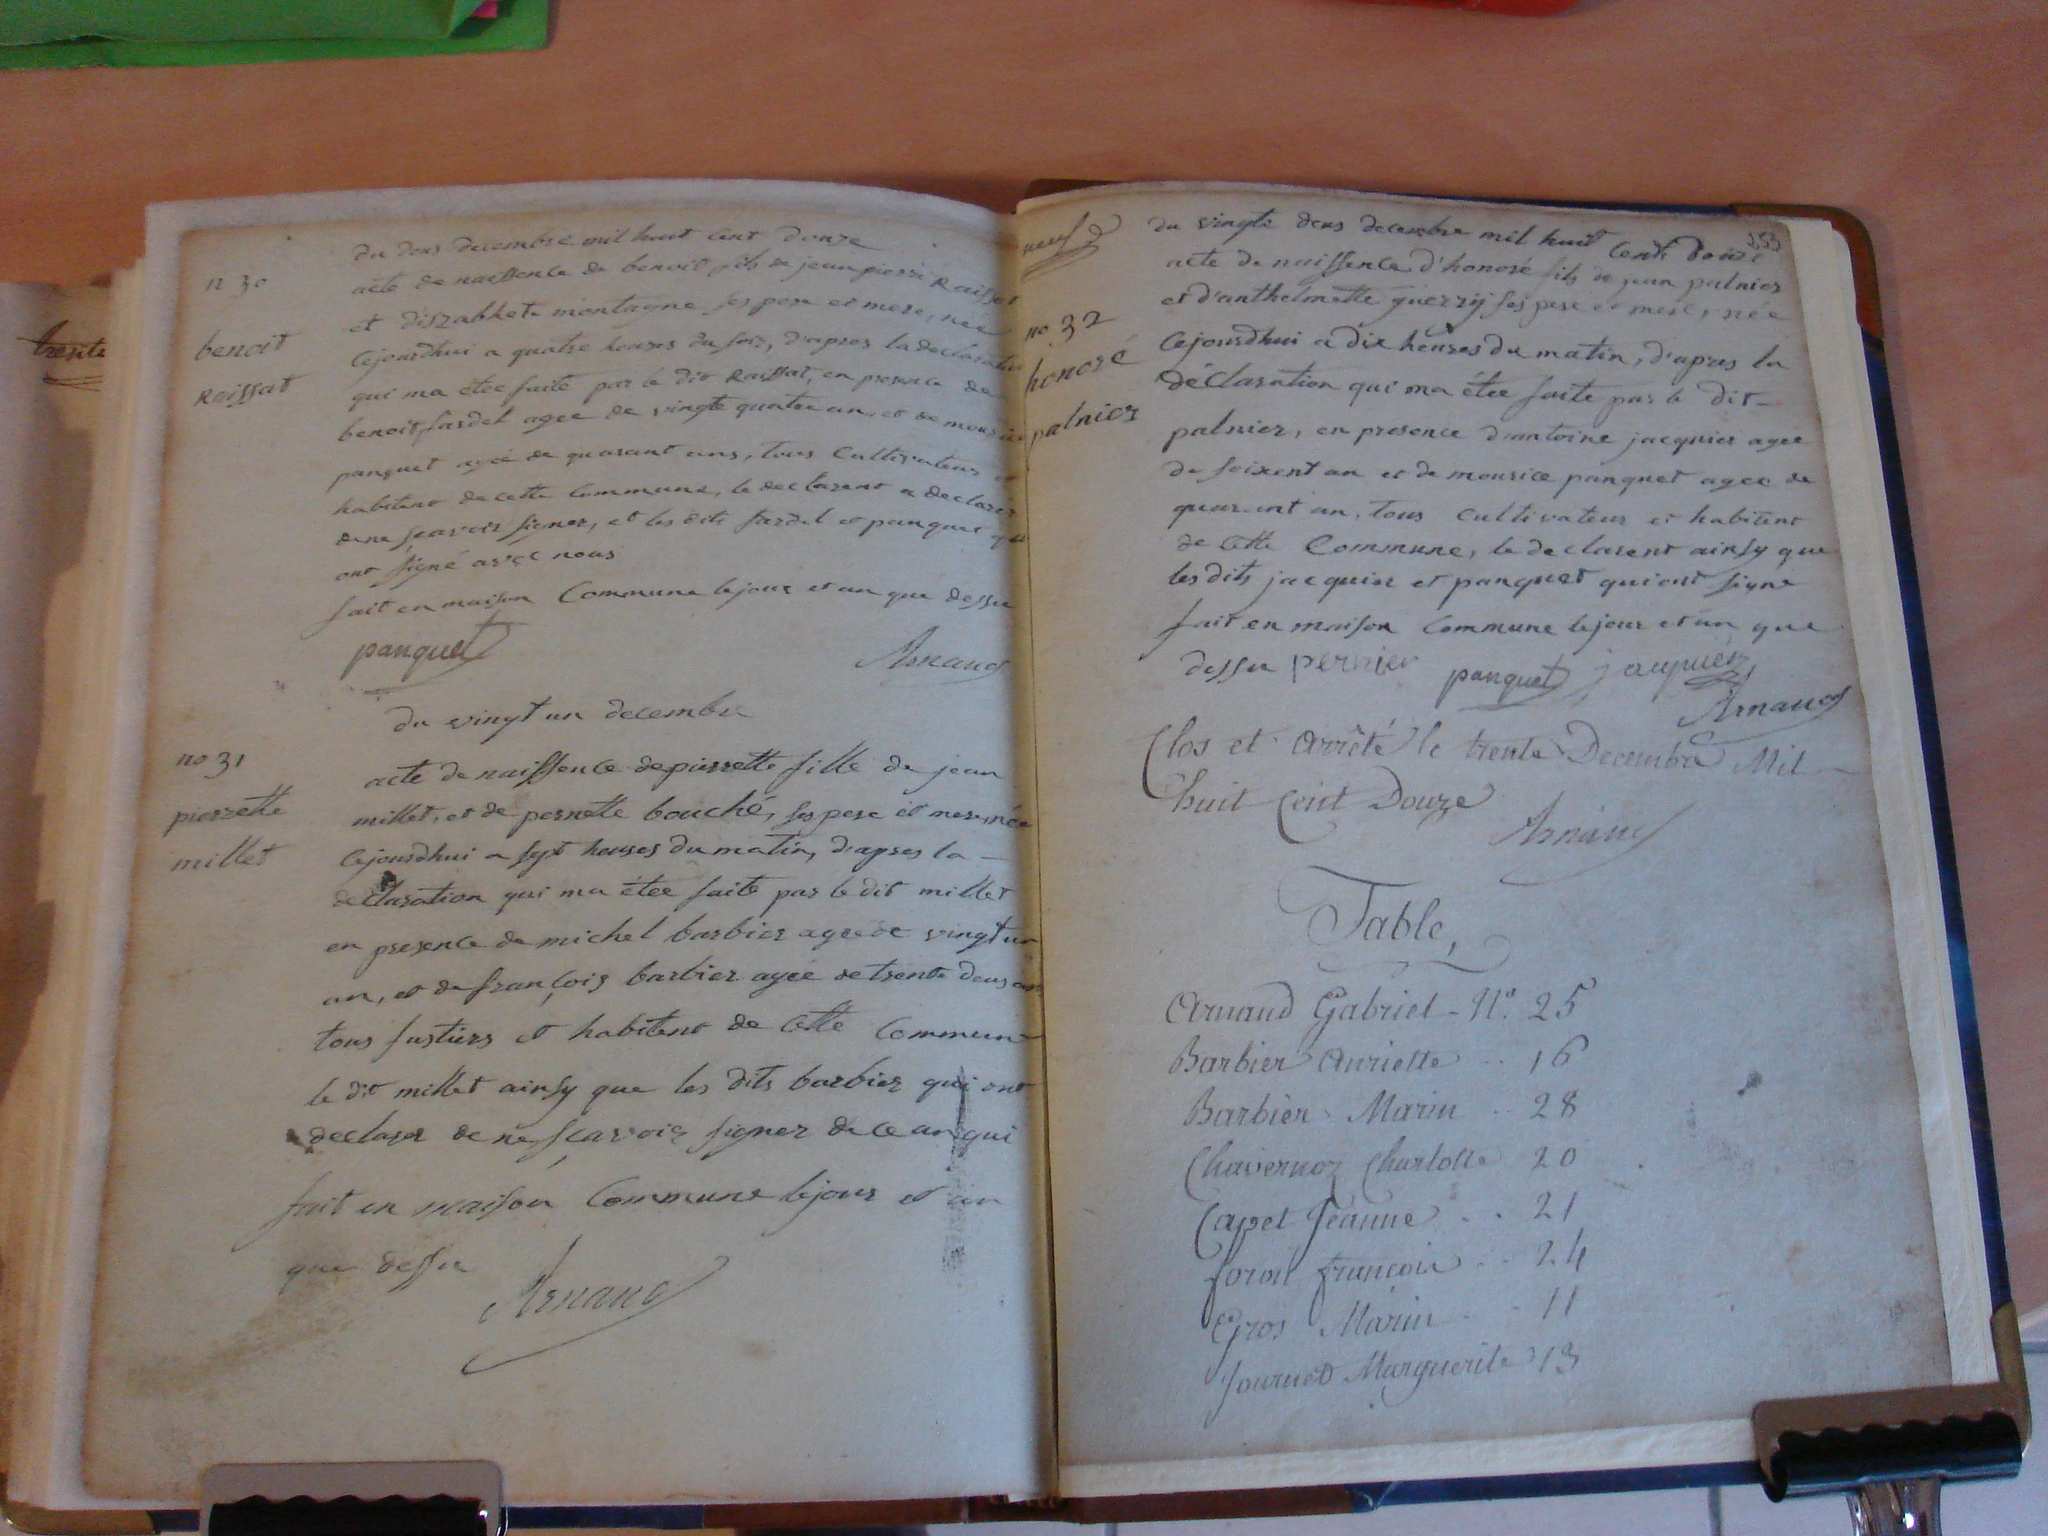 treske
du deus decembre mil huit cent douze
n 30
acte de naissence de benoit fils de jean pierre Raissat
et diszabhete montagne ses pere et mere, nee
benoit
Raissat
Cejourdhui a quatre heures du soir, d'apres la declaration
qui ma étee faite par le dit Raissat, en presence de
benoit fardel agee de vingte quatre an, et de mourice
panquet agée de quarant ans, tous Cultivateurs et
habitent de cette Commune, le declarent a declarer
dene sçavoir signer, et les dits fardel et panquet qui
ont signé avec nous
fait en maison Commune lejour et an que dessu
panquet Arnaud
du vingt un decembre
no 31
pierrette
millet
acte de naissence de pierrette fille de jean
millet, et de pernette bouché, ses pere et mere, née
Cejourdhui a sept heures du matin, d'apres la
declaration qui ma étee faite par le dit millet
en presence de michel barbier agee de vingt un
an, et de françois barbier agée de trente deus ans
tous fustiers et habitent de Cette Commune
le dit millet ainsy que les dits barbier qui ont
declarer de ne sçavoir signer de ce an qui
fait en maison Commune lejour et an
que dessu
Arnaud
neuf
253
du vingte deus decembre mil huit Cent douze
acte de naissence d'honoré fils de jean palnier
et d'anthelmette guerry ses pere et mere, née
no 32
honoré
palnier
Cejourdhui a dix heures du matin, d'apres la
déclaration qui ma étee faite par le dit
palnier, en presence d'antoine jacquier agée
de soixent an et de mourice panquet agee de
quarant an, tous Cultivateur et habitent
de Cette Commune, le declarent ainsy que
les dits jacquier et panquet qui ont signe
fait en maison Commune lejour et an que
dessu pernier panquet jaquier
Arnaud
Clos et Arrêté le trente Decembre Mil
huit Cent Douze
Arnaud
Table,
Arnaud Gabriel - N.º 25
Barbier Anriette .. 16
Barbier Marin .. 28
Chavernoz Charlotte 20
Capet Jeanne .. 21
foron françois .. 24
Gros Marin .. 11
Journed Marguerite 13